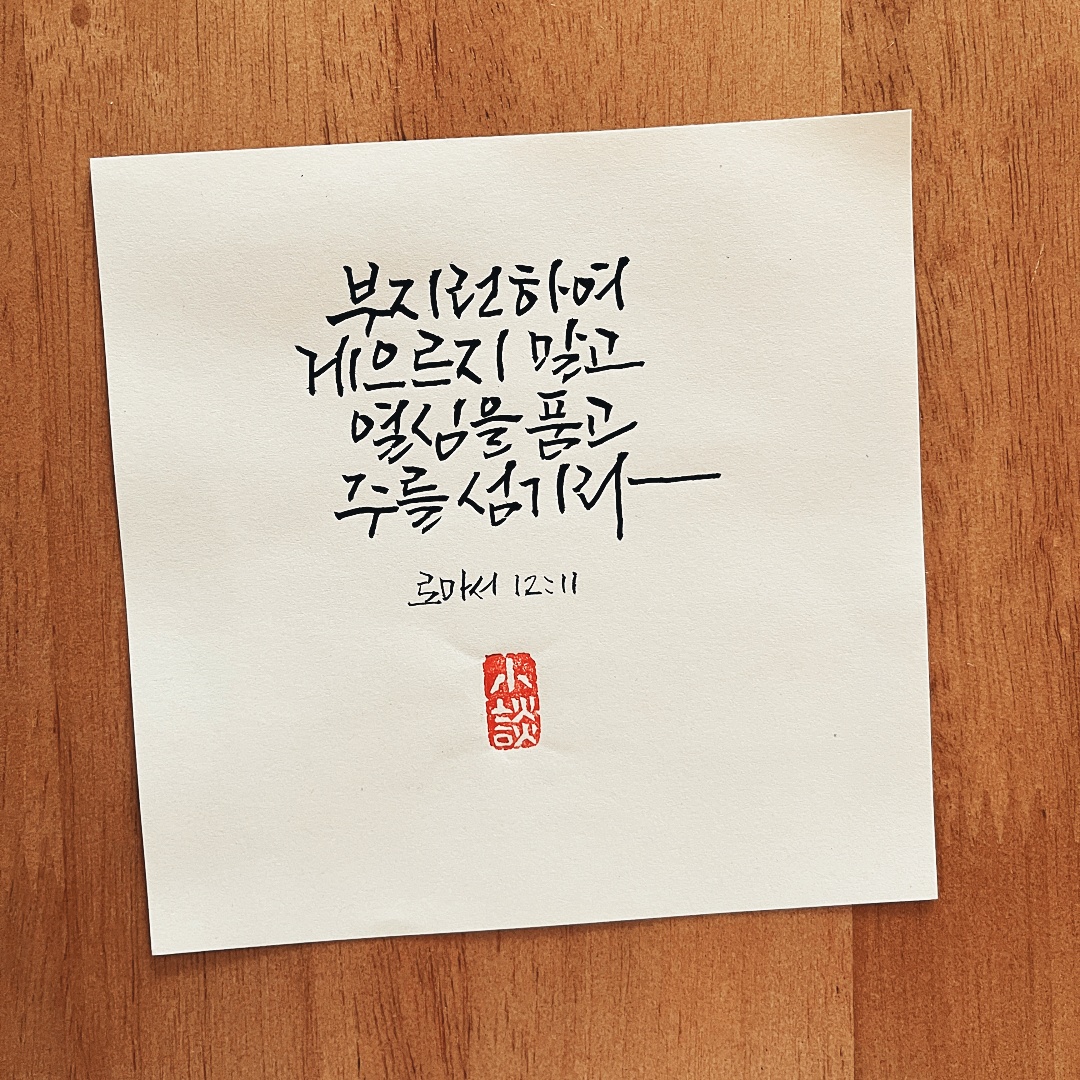 부지런하여
게으르지 말고
열심을 품고
주를 섬기라
로마서 12:11
小
談